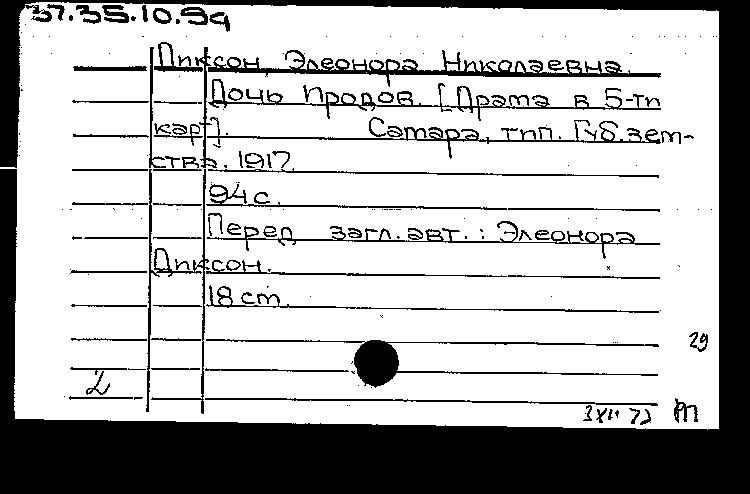 37.35.10.94
Диксон, Элеонора Николаевна.
Дочь Продов. [Драма в 5-ти
карт].    Самара, тип. Губ.зем-
ства. 1917.
94 с.
Перед загл. авт.: Элеонора
Диксон.
18 cm.
29
2
3 XII 73